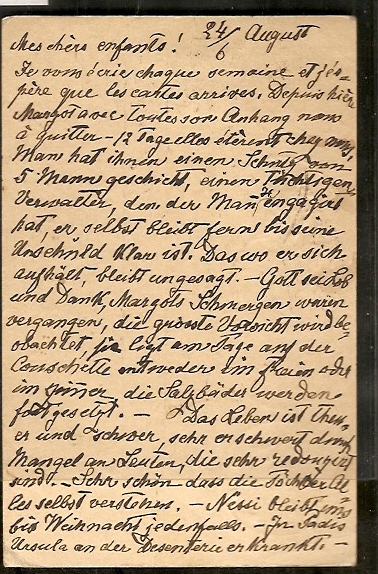 Mes chèrs enfants! 24/6 August
Je vous écris chaque semaine et j'és-
père que les cartes arrives. Depuis hièr
Margot avec toutes son Anhang nous
à quitter - 12 Tage elles étèrent chez nous,
Man hat ihnen einen Schutz von
5 Mann geschickt, einen tüchtigen
Verwalter, den der Man engagirt
hat, er selbst bleibt fern bis seine
Unschuld klar ist. Das wo er sich
aufhält, bleibt ungesagt. - Gott sei Lob
und Dank, Margots Schmerzen wären
vergangen, die grösste Vorsicht wird be-
obachtet, sie liegt am Tage auf der
Couschette entweder im freien oder
im Zimer, die Salzbäder werden
fortgesetzt. - Das Leben ist theu-
er und schwer, sehr erschwert durch
Mangel an Leuten, die sehr reduzirt
sind. - Sehr schön dass die Töchter Al-
les selbst verstehen. - Nessi bleibt uns
bis Weihnacht jedenfalls. - In
Ursula an der Desenterie erkrankt. -